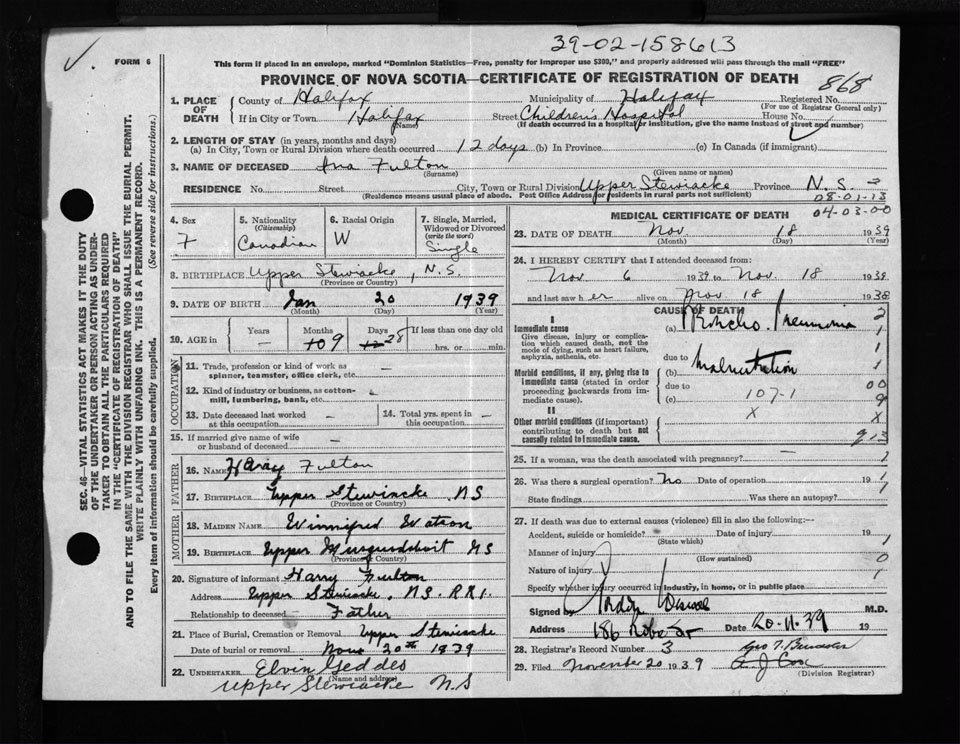 39-02-158613
FORM 6
This form if placed in an envelope, marked "Dominion Statistics—Free, penalty for improper use $300," and properly addressed will pass through the mail "FREE"
PROVINCE OF NOVA SCOTIA—CERTIFICATE OF REGISTRATION OF DEATH
868
1. PLACE OF DEATH
County of Halifax Municipality of Halifax Registered No.
(For use of Registrar General only)
If in City or Town Halifax Street Children's Hospital House No.
(Name) (If death occurred in a hospital or institution, give the name instead of street and number)
2. LENGTH OF STAY (in years, months and days)
(a) In City, Town or Rural Division where death occurred 12 days (b) In Province (c) In Canada (if immigrant)
3. NAME OF DECEASED Ina Fulton
(Surname) (Given name or names)
RESIDENCE No. Street City, Town or Rural Division Upper Stewiacke Province N.S.
(Residence means usual place of abode. Post Office Address of residents in rural parts not sufficient)
08-01-13
04-03-00
4. Sex
F
5. Nationality
(Citizenship)
Canadian
6. Racial Origin
W
7. Single, Married, Widowed or Divorced
(write the word)
Single
8. BIRTHPLACE Upper Stewiacke, N.S.
(Province or Country)
9. DATE OF BIRTH Jan 20 1939
(Month) (Day) (Year)
10. AGE in Years Months Days If less than one day old
— 10 9 28 hrs. or min.
OCCUPATION
11. Trade, profession or kind of work as spinner, teamster, office clerk, etc.
12. Kind of industry or business, as cotton-mill, lumbering, bank, etc.
13. Date deceased last worked at this occupation —
14. Total yrs. spent in this occupation —
15. If married give name of wife or husband of deceased —
FATHER
16. NAME Harry Fulton
17. BIRTHPLACE Upper Stewiacke NS
(Province or Country)
MOTHER
18. MAIDEN NAME Winnifred Watson
19. BIRTHPLACE Upper Musquodoboit NS
(Province or Country)
20. Signature of informant Harry Fulton
Address Upper Stewiacke, NS. RR1.
Relationship to deceased Father
21. Place of Burial, Cremation or Removal Upper Stewiacke
Date of burial or removal Nov 20th 1939
22. UNDERTAKER Elvin Geddes
(Name and address)
Upper Stewiacke N.S
MEDICAL CERTIFICATE OF DEATH
23. DATE OF DEATH Nov 18 1939
(Month) (Day) (Year)
24. I HEREBY CERTIFY that I attended deceased from:
Nov 6 1939 to Nov. 18 1939
and last saw her alive on Nov 18 1938
CAUSE OF DEATH
I
Immediate cause
Give disease, injury or complication which caused death, not the mode of dying, such as heart failure, asphyxia, asthenia, etc.
(a) Broncho. Pneumonia
due to
Morbid conditions, if any, giving rise to immediate cause (stated in order proceeding backwards from immediate cause).
(b) Malnutrition
due to
(c) 107-1
II
Other morbid conditions (if important) contributing to death but not causally related to immediate cause.
X
25. If a woman, was the death associated with pregnancy? —
26. Was there a surgical operation? No Date of operation 19
State findings Was there an autopsy?
27. If death was due to external causes (violence) fill in also the following:—
Accident, suicide or homicide? Date of injury 19
(State which)
Manner of injury
(How sustained)
Nature of injury
Specify whether injury occurred in industry, in home, or in public place
Signed by M.D.
Address 186 Robie St Date 20-11-39 19
28. Registrar's Record Number 3
29. Filed November 20 1939 A J Cox
(Division Registrar)
SEC. 46—VITAL STATISTICS ACT MAKES IT THE DUTY OF THE UNDERTAKER OR PERSON ACTING AS UNDERTAKER TO OBTAIN ALL THE PARTICULARS REQUIRED IN THE "CERTIFICATE OF REGISTRATION OF DEATH" AND TO FILE THE SAME WITH THE DIVISION REGISTRAR WHO SHALL ISSUE THE BURIAL PERMIT.
WRITE PLAINLY WITH UNFADING INK. THIS IS A PERMANENT RECORD.
Every item of information should be carefully supplied. (See reverse side for instructions.)